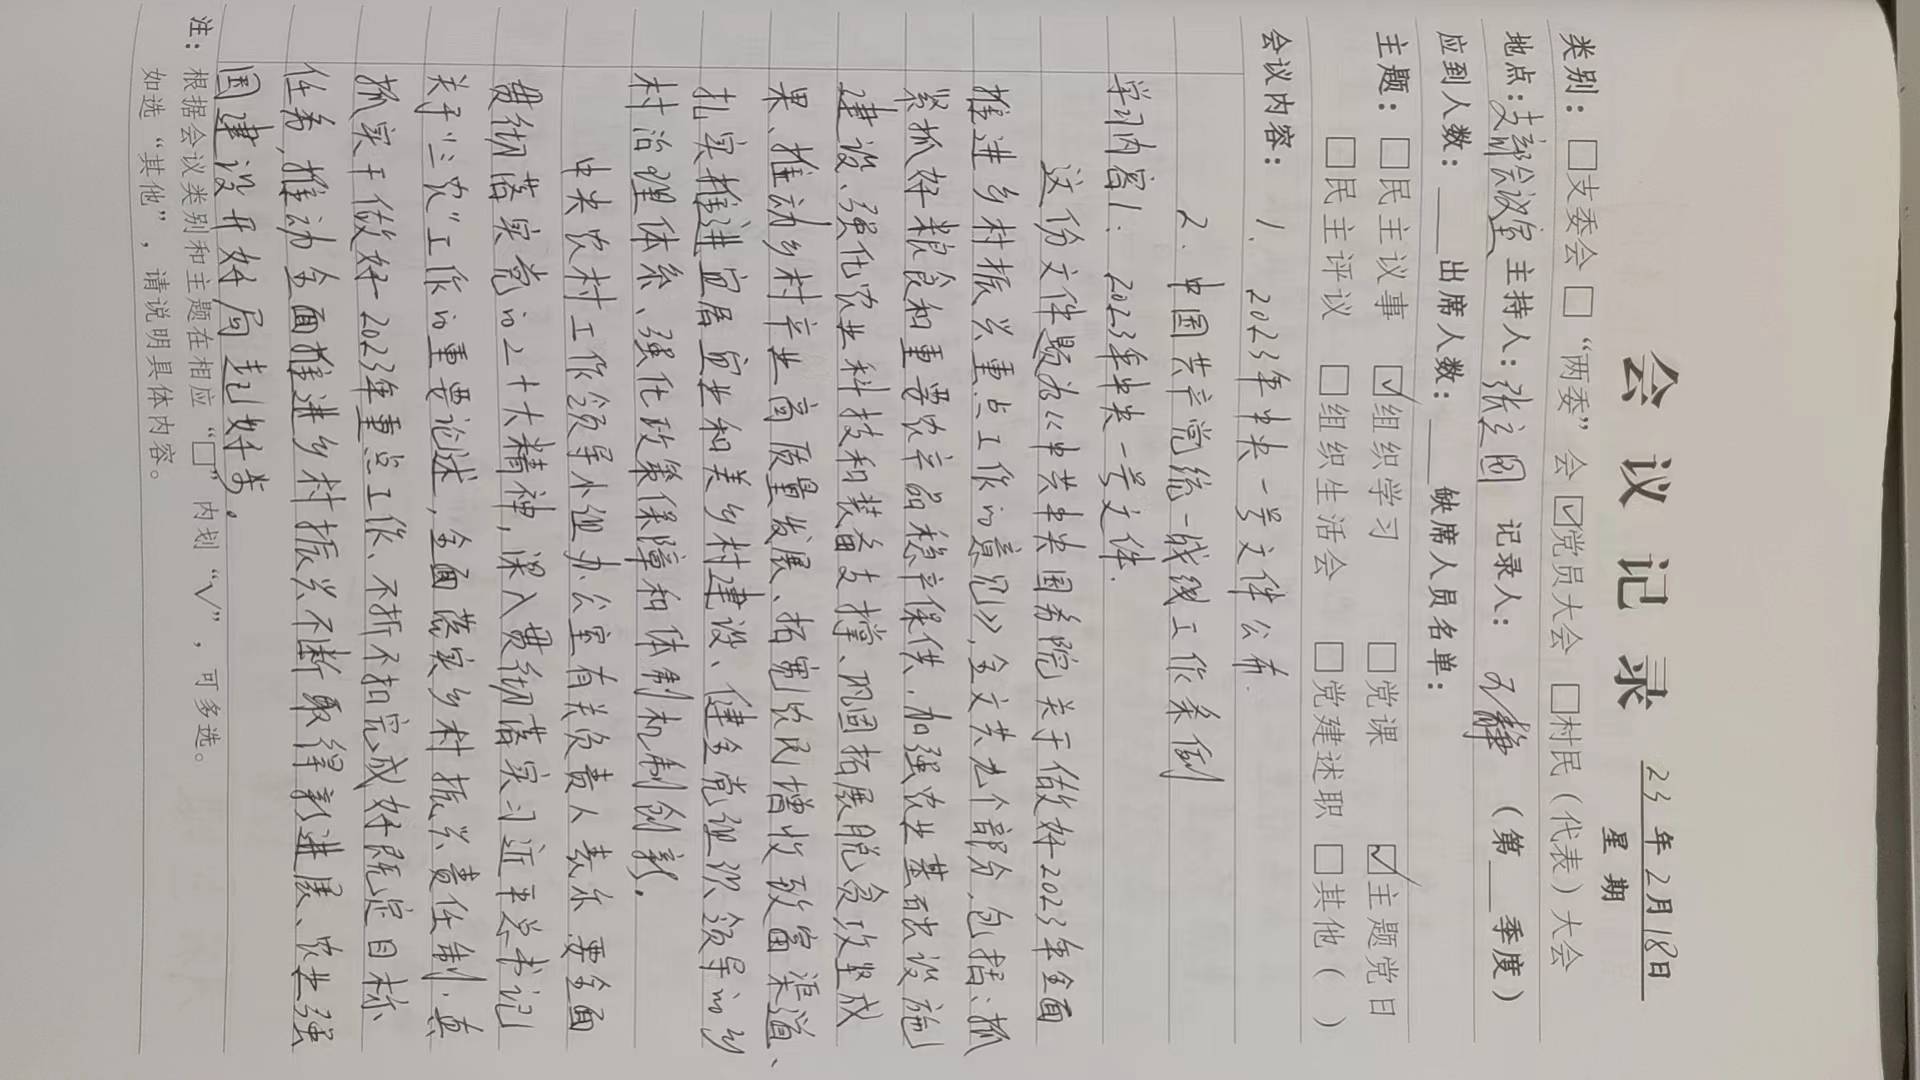 会议记录
23年2月18日
星期
类别：□支委会 □“两委”会 ☑党员大会 □村民（代表）大会
地点：支部会议室 主持人：张立国 记录人： （第__季度）
应到人数：___出席人数：___缺席人员名单：
主题：□民主议事 ☑组织学习 □党课 ☑主题党日
□民主评议 □组织生活会 □党建述职 □其他（ ）
会议内容：1. 2023年中央一号文件公布.
2. 中国共产党统一战线工作条例
学习内容1: 2023年中央一号文件.
这份文件题为《中共中央国务院关于做好2023年全面
推进乡村振兴重点工作的意见》,全文共九个部分,包括:抓
紧抓好粮食和重要农产品稳产保供.加强农业基础设施
建设、强化农业科技和装备支撑、巩固拓展脱贫攻坚成
果、推动乡村产业高质量发展、拓宽农民增收致富渠道、
扎实推进宜居宜业和美乡村建设、健全党组织领导的乡
村治理体系、强化政策保障和体制机制创新。
中央农村工作领导小组办公室有关负责人表示.要全面
贯彻落实党的二十大精神,深入贯彻落实习近平总书记
关于“三农”工作的重要论述,全面落实乡村振兴责任制.真
抓实干做好2023年重点工作、不折不扣完成好既定目标
任务,推动全面推进乡村振兴不断取得新进展、农业强
国建设开好局起好步。
注：根据会议类别和主题在相应“□”内划“√”，可多选。
如选“其他”，请说明具体内容。